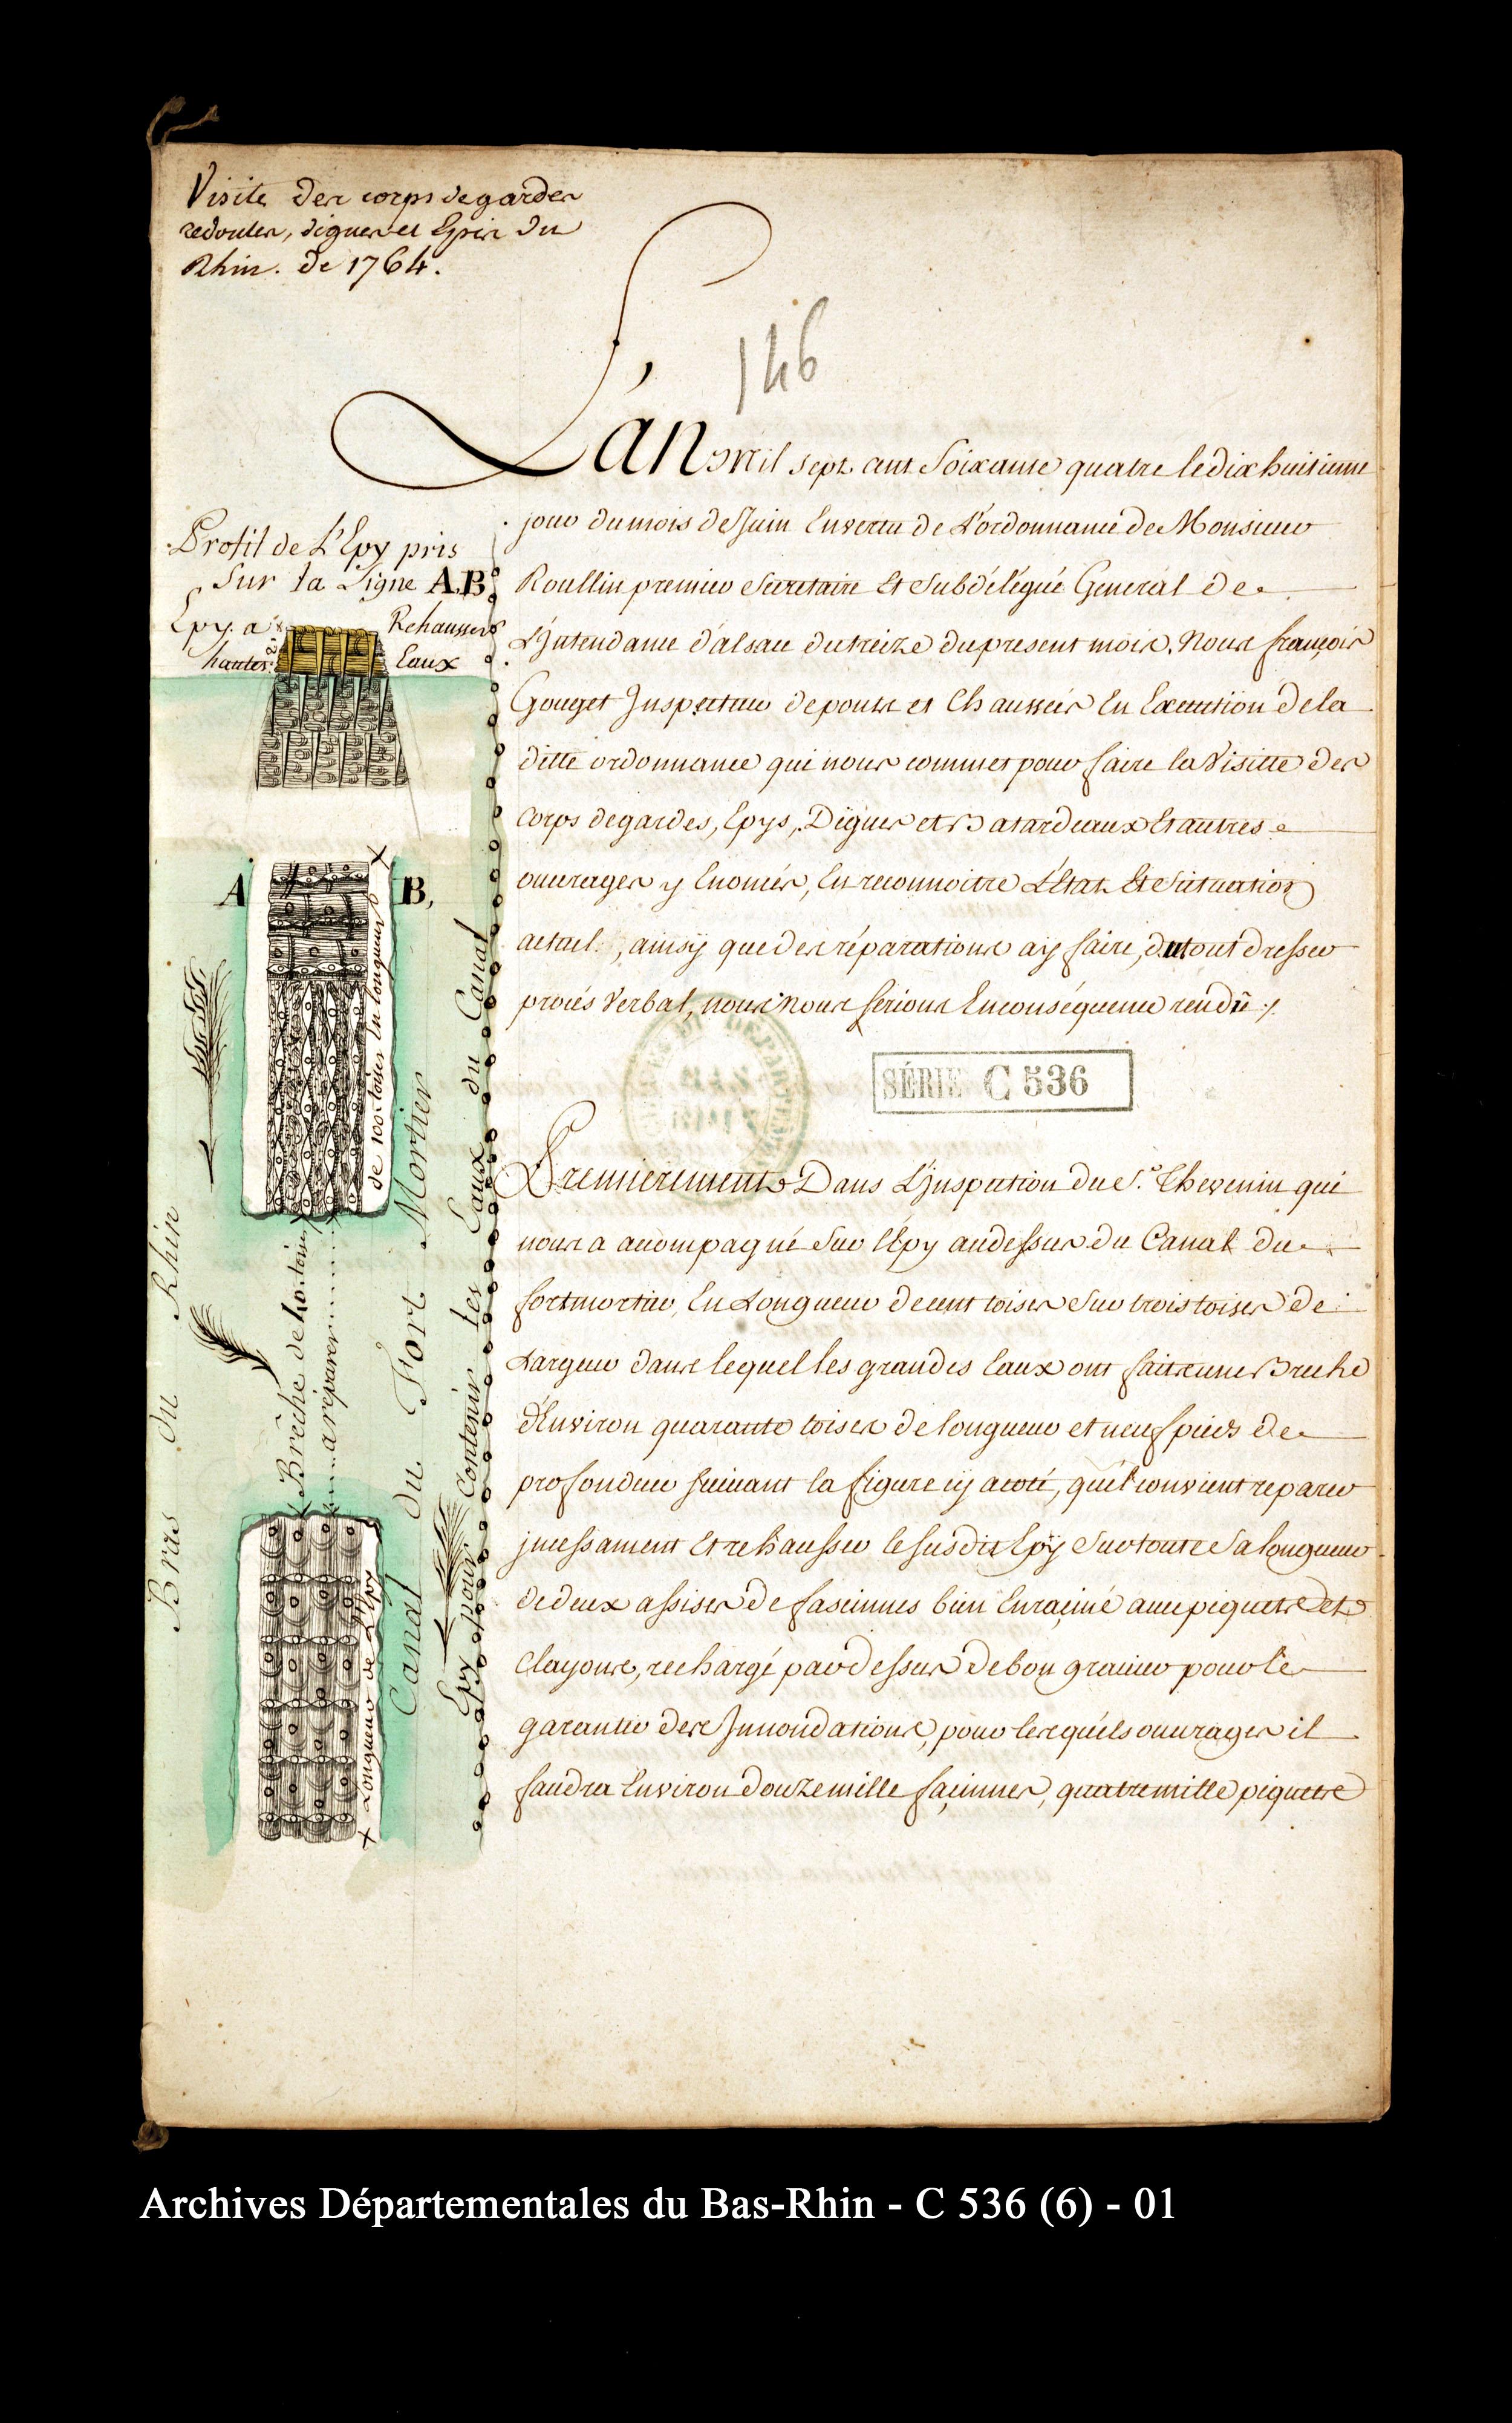 Visite des corps de gardes
redoutes, digues et Epis du
Rhin. de 1764.
146
L'an mil sept cent Soixante quatre le dix huitieme
jour du mois de Juin En vertu de L'ordonnance de Monsieur
Roullin premier Secretaire Et Subdélégué General de
L'Jntendance d'alsace du treize du present mois. Nous françois
Gouget Jnspecteur de ponts et Chaussées En Execution de la
ditte ordonnance qui nous commet pour faire la Visitte des
Corps de gardes, Epys, Digues et Batardeaux Et autres
ouvrages y Enoncés, En reconnoitre L'Etat Et Situation
actuel, ainsÿ que des réparations aÿ faire, du tout dresser
procés Verbal, nous nous serions En conséquence rendû
SÉRIE C 536
Premierement Dans L'Jnspection du S.r Thevenin qui
nous a accompagné Sur l'Epy au dessus du Canal du
fort mortier, En Longueur de cent toises Sur trois toises de
Largeur dans lequel les grandes Eaux ont fait une Breche
d'Environ quarante toises de longueur et neuf pieds de
profondeur suivant la figure cy a coté, qu'il convient reparer
jncessament Et rehausser le susdit Epÿ Sur toute Sa longueur
de deux assises de fascinnes bien Enraciné avec piquets et
Clayons, rechargé par dessus de bon gravier pour le
garantir des Jnnondations, pour lesquéls ouvrages il
faudra Environ douze mille façinnes, quatre mille piquets
Profil de L'Epy pris
Sur la Ligne A.B
Epy a Rehausser
hautes Eaux
A B,
de 100 toises En longueur
Brêche de 40 toises
a réparer
Longueur de L'Epy
Bras du Rhin
Canal du Fort Mortier
Epy pour Contenir Les Eaux du Canal
Archives Départementales du Bas-Rhin - C 536 (6) - 01